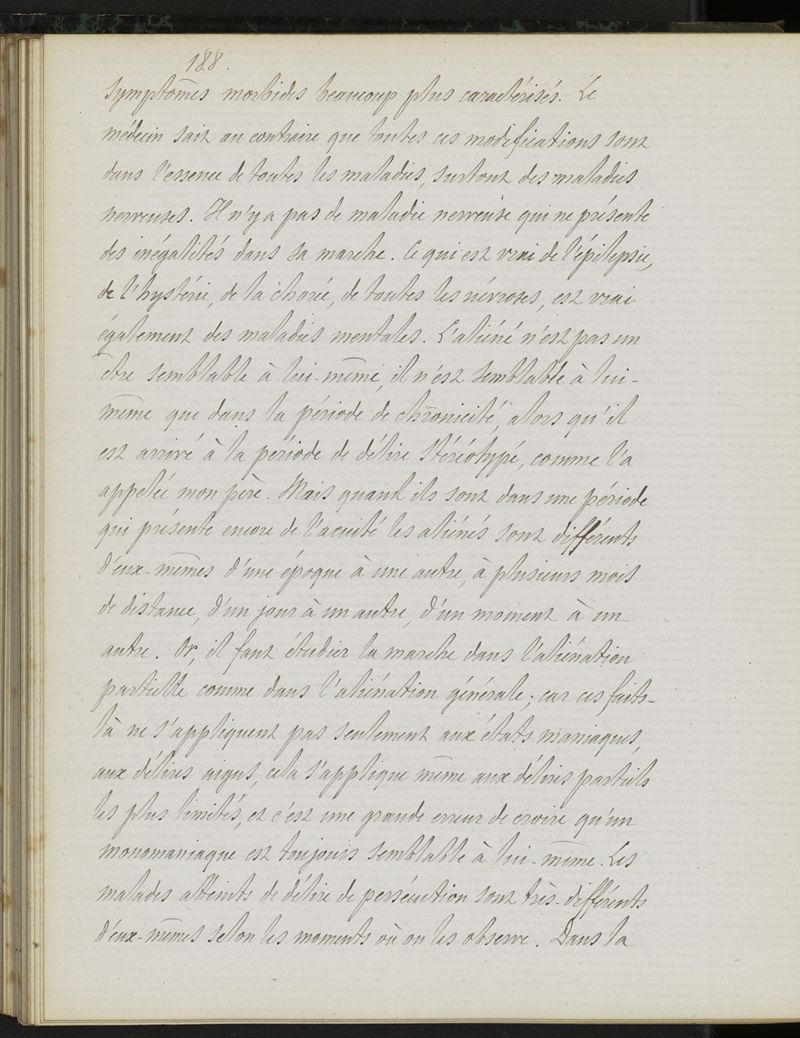 188.
symptômes morbides beaucoup plus caractérisés. Le
médecin sait au contraire que toutes ces modifications sont
dans l'essence de toutes les maladies, surtout des maladies
nerveuses. Il n'y a pas de maladie nerveuse qui ne présente
des inégalités dans sa marche. Ce qui est vrai de l'épilepsie,
de l'hystérie, de la chorée, de toutes les névroses, est vrai
également des maladies mentales. L'aliéné n'est pas un
être semblable à lui-même, il n'est semblable à lui-
même que dans la période de chronicité, alors qu'il
est arrivé à la période de délire stéréotypé, comme l'a
appelée mon père. Mais quand ils sont dans une période
qui présente encore de l'acuité les aliénés sont différents
d'eux-mêmes d'une époque à une autre, à plusieurs mois
de distance, d'un jour à un autre, d'un moment à un
autre. Or, il faut étudier la marche dans l'aliénation
partielle comme dans l'aliénation générale; car ces faits-
là ne s'appliquent pas seulement aux états maniaques,
aux délires aigus, cela s'applique même aux délires partiels
les plus limités, et c'est une grande erreur de croire qu'un
monomaniaque est toujours semblable à lui-même. Les
malades atteints de délire de persécution sont très-différents
d'eux-mêmes selon les moments où on les observe. Dans la